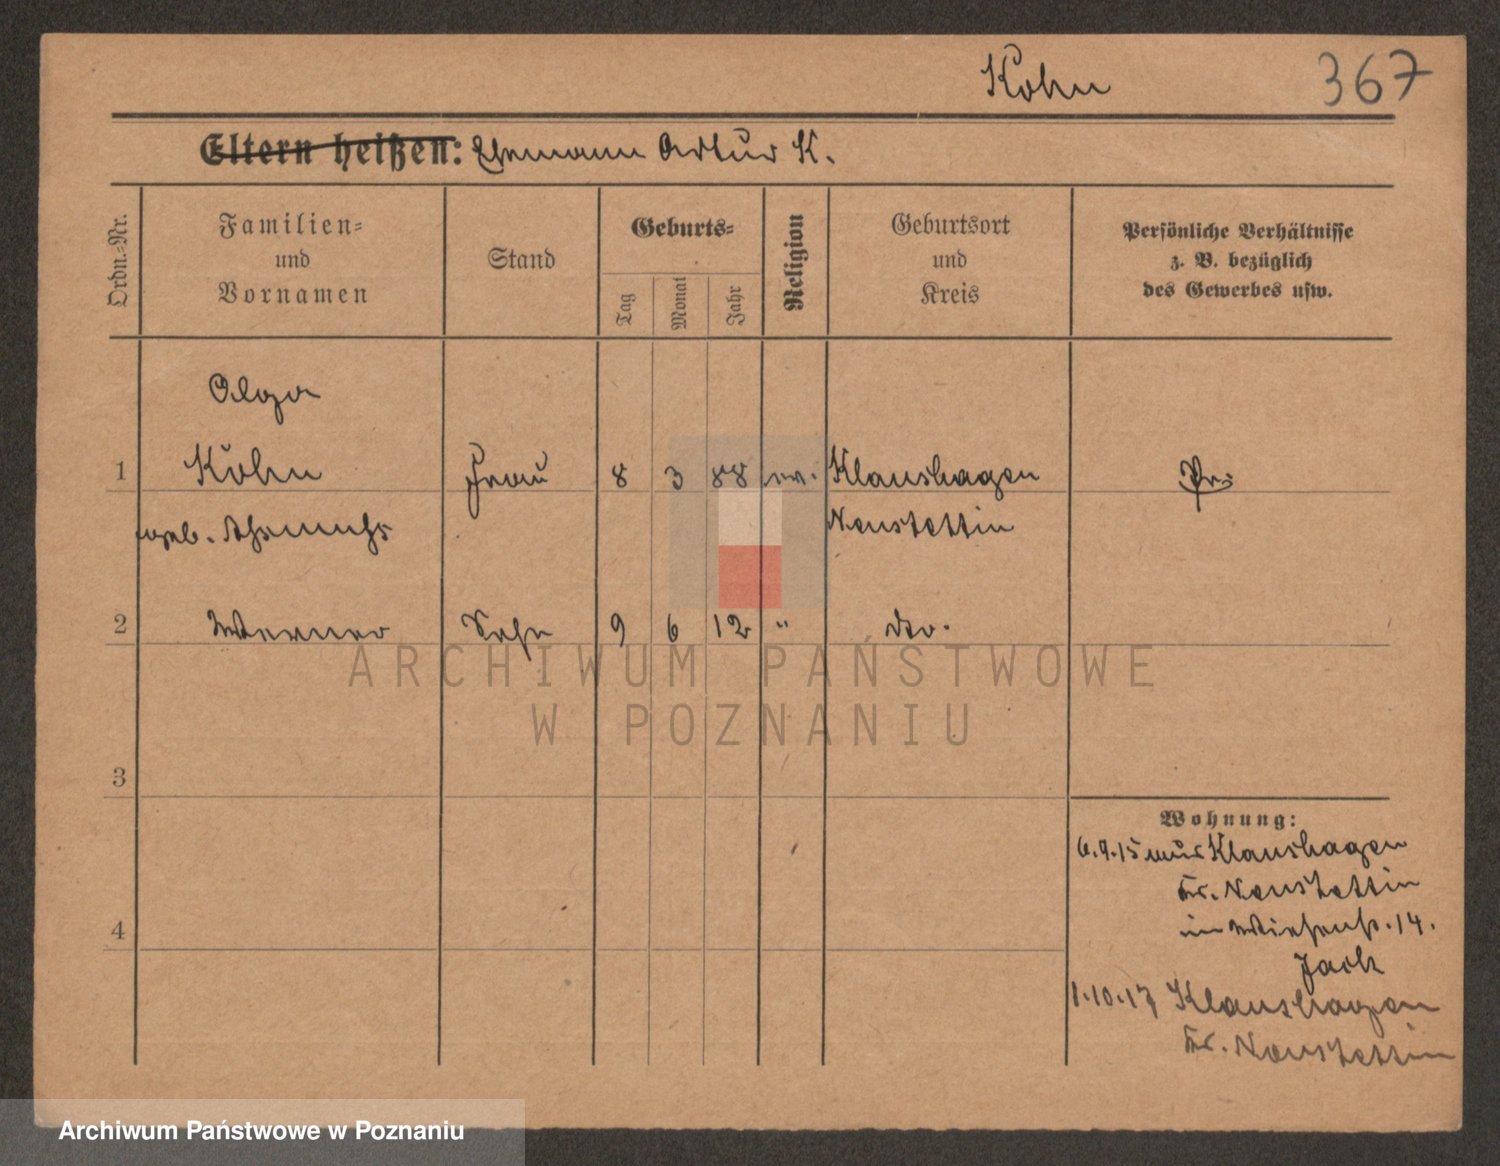 Kohn 367
Eltern heißen: Ehemann Artur K.
Ordn.-Nr.
Familien-
und
Vornamen
Stand
Geburts-
Tag
Monat
Jahr
Religion
Geburtsort
und
Kreis
Persönliche Verhältnisse
z. B. bezüglich
des Gewerbes usw.
Olga
1 Kohn Frau 8 3 88 ev. Klaushagen Pr.
geb. Neustettin
2 Werner Sohn 9 6 12 " do.
ARCHIWUM PAŃSTWOWE
W POZNANIU
3
Wohnung:
6.9.15 aus Klaushagen
Kr. Neustettin
4
in Wiesenstr. 14.
1.10.17 Klaushagen
Kr. Neustettin
Archiwum Państwowe w Poznaniu